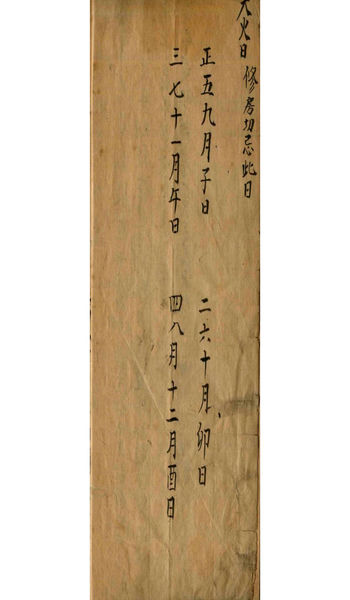 天火日 修房切忌此日
正五九月子日 二六十月卯日
三七十一月午日 四八月十二月酉日